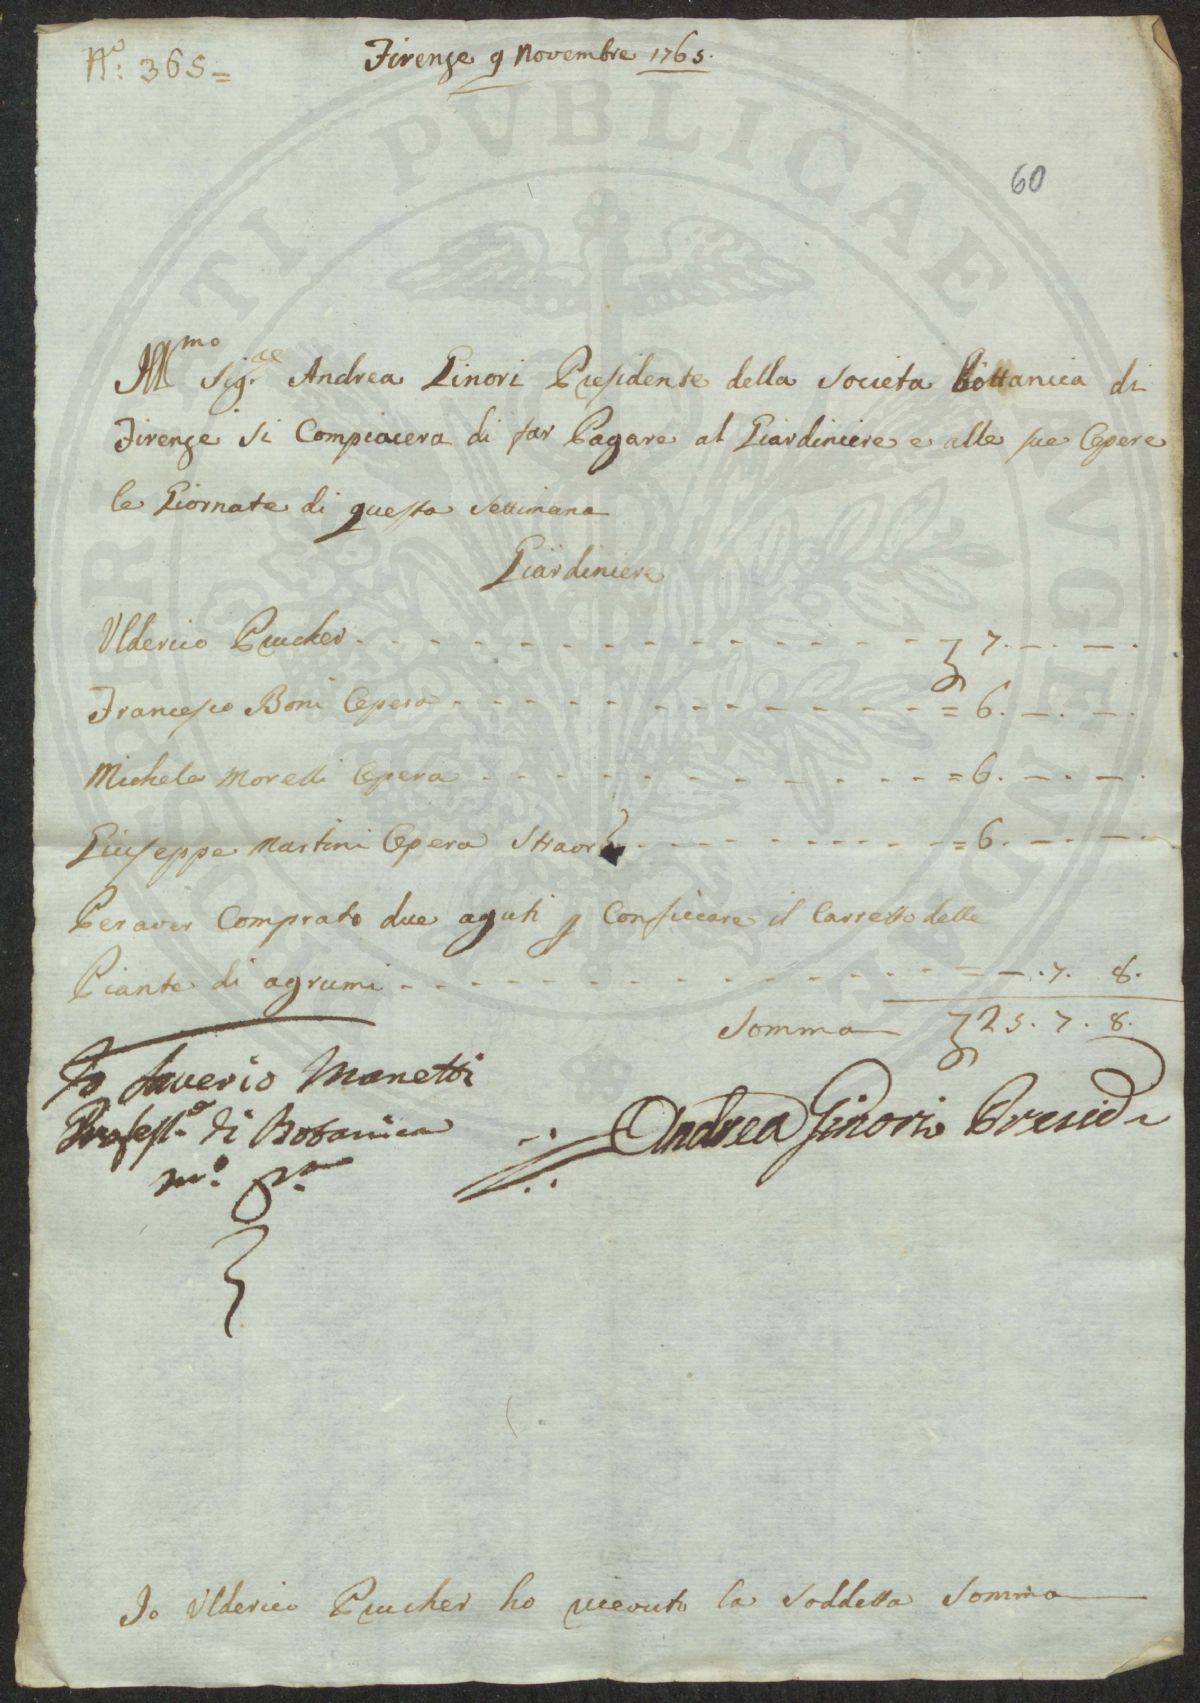 N.º: 365=
Firenze 9 Novembre 1765.
60
Ill.mo Sig.re Andrea Ginori Presidente della Societa Bottanica di
Firenze si Compiacera di far Pagare al Giardiniere e alle sue Opere
le Giornate di questa Settimana
Giardiniere
Ulderico Prucher - - - 7. — . — .
Francesco Boni Opera - - - = 6. — . — .
Michele Morelli Opera - - - = 6. — . — .
Giuseppe Martini Opera Straor - - - = 6. — . — .
Per aver Comprato due aguti p Conficcare il Carretto delle
Piante di agrumi - - - = — . 7. 8.
Somma 25. 7. 8.
Io Saverio Manetti
Profess.e di Botanica
m.º p.a
Andrea Ginori Presid.e
Io Ulderico Prucher ho riceuto la Soddetta Somma